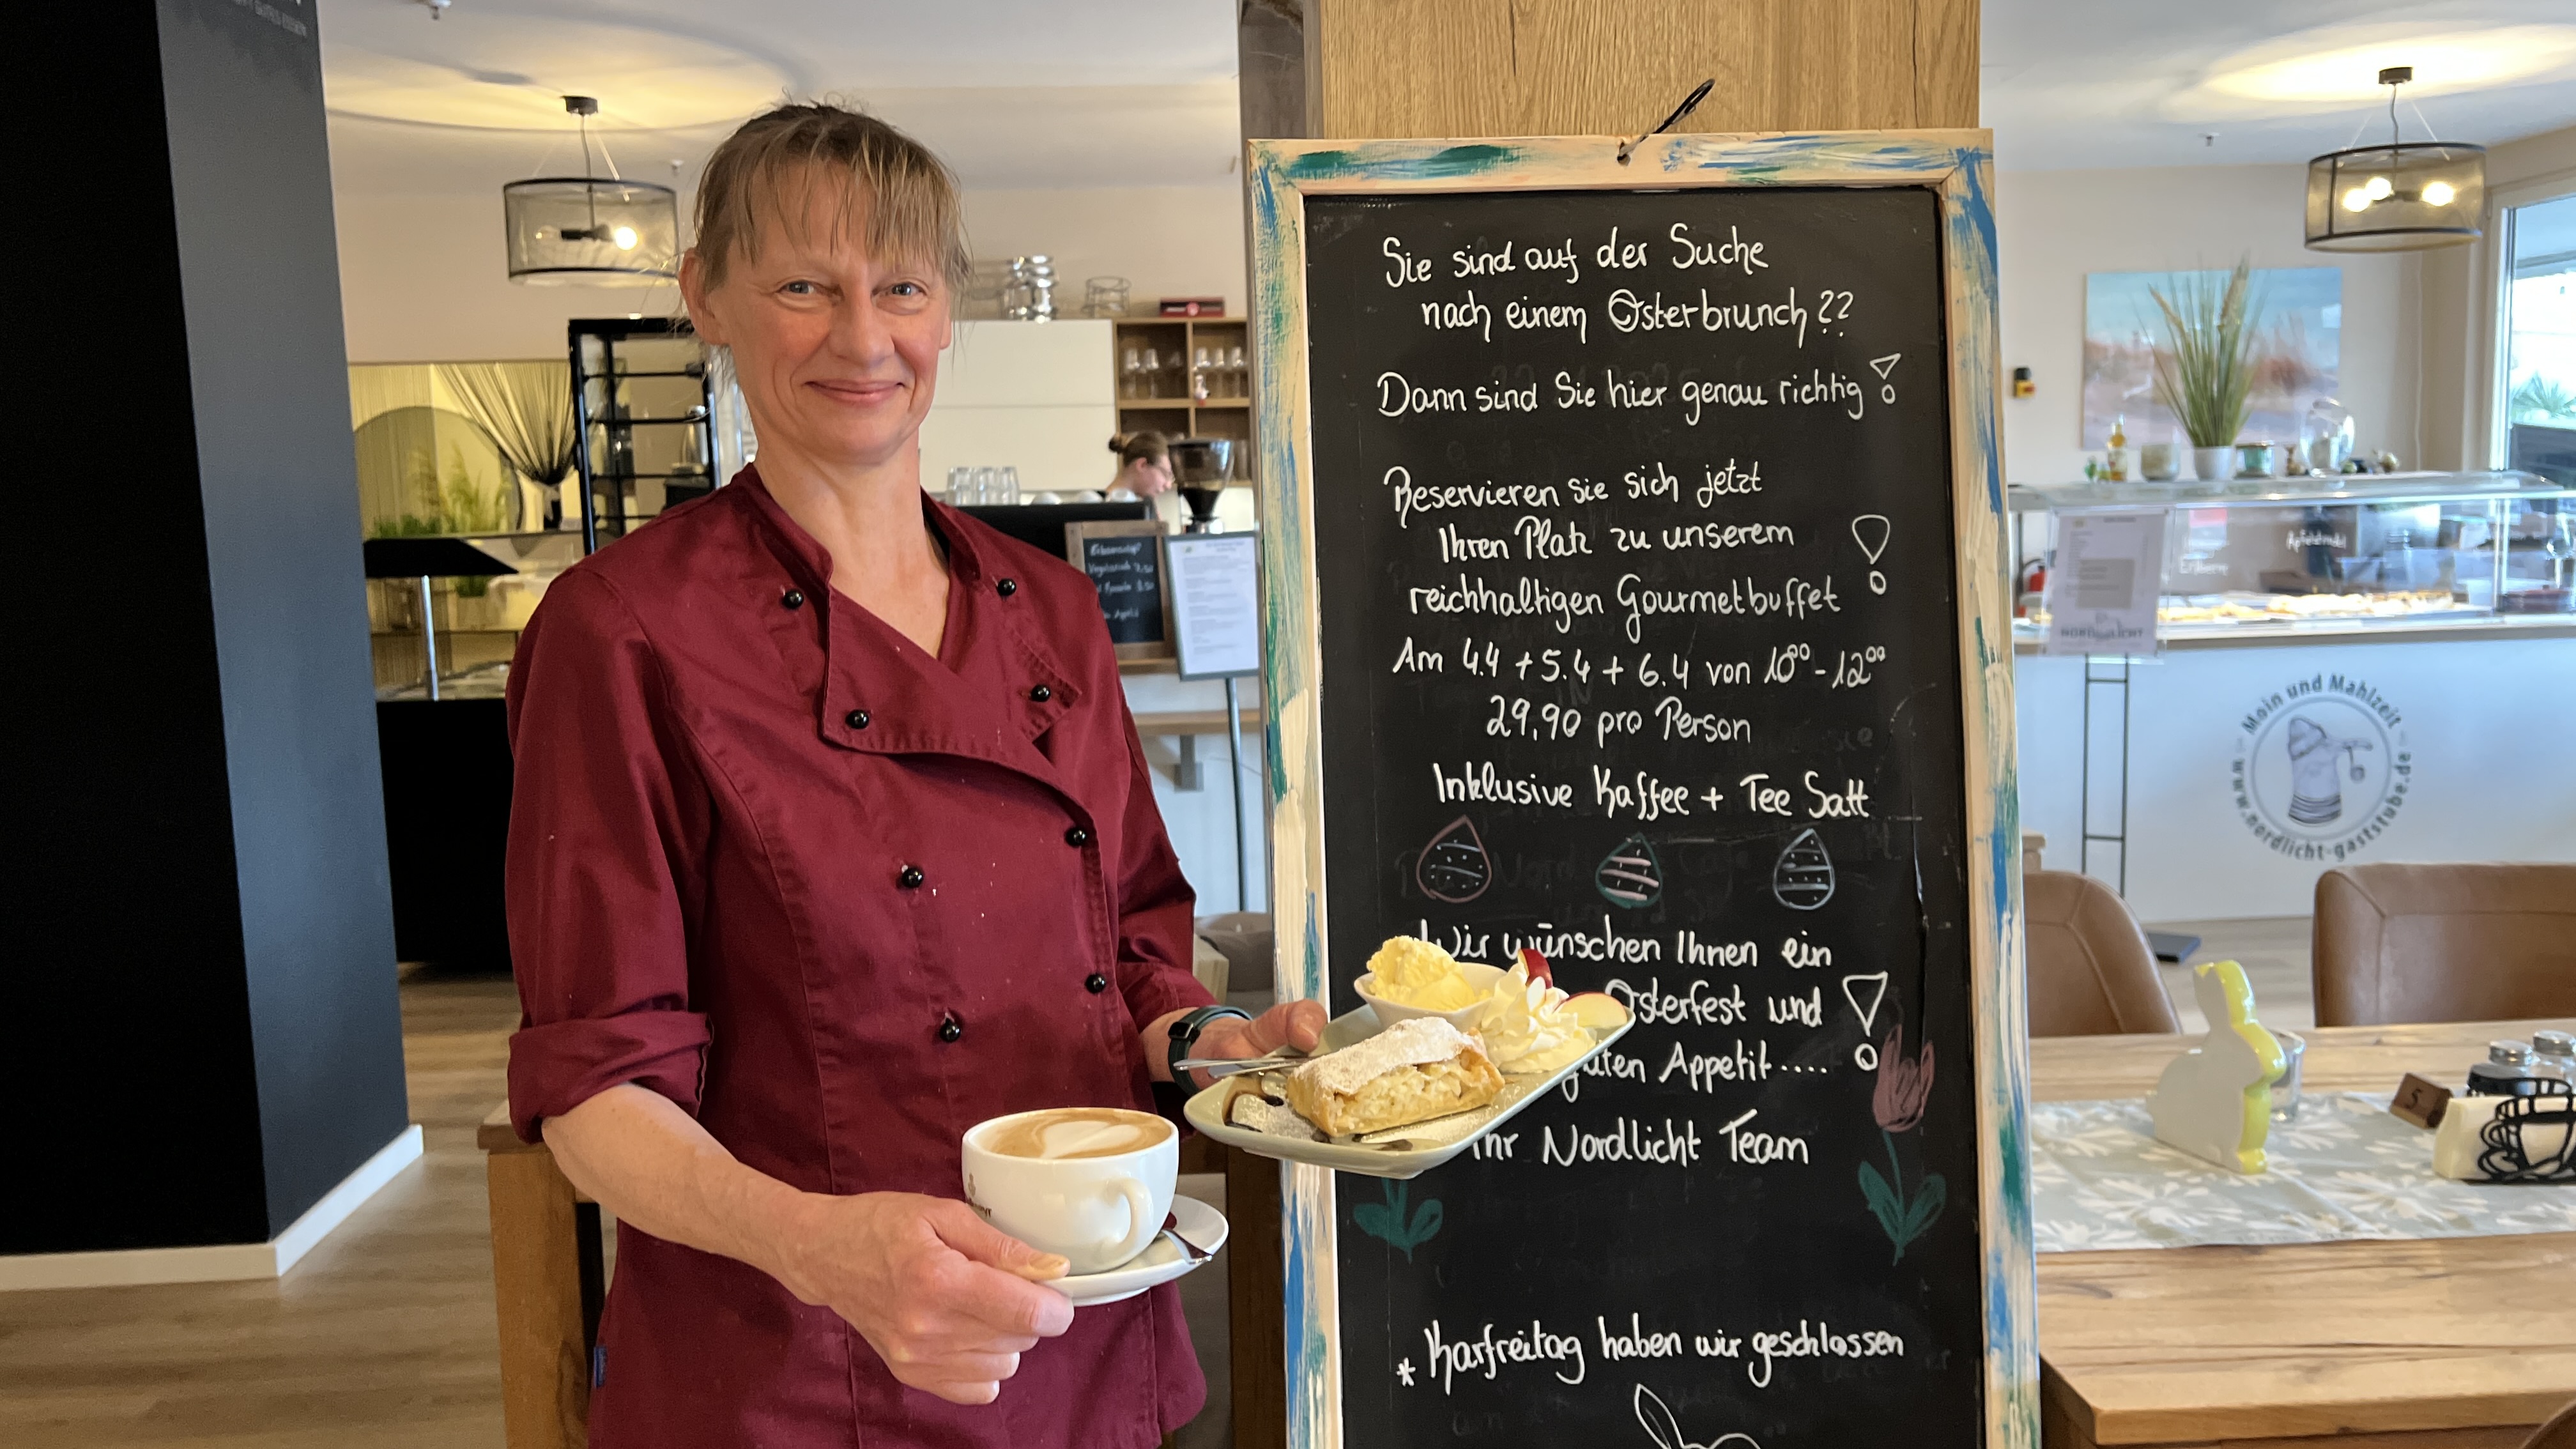 Sie sind auf der Suche
nach einem Osterbrunch??
Dann sind Sie hier genau richtig!
Reservieren sie sich jetzt
Ihren Platz zu unserem
reichhaltigen Gourmetbuffet!
Am 4.4 + 5.4 + 6.4 von 10⁰⁰ - 12⁰⁰
29,90 pro Person
Inklusive Kaffee + Tee Satt
Wir wünschen Ihnen ein
Osterfest und
guten Appetit....!
Ihr Nordlicht Team
* Karfreitag haben wir geschlossen
Moin und Mahlzeit
www.nordlicht-gaststube.de
NORDLICHT
Apfelstrudel
5